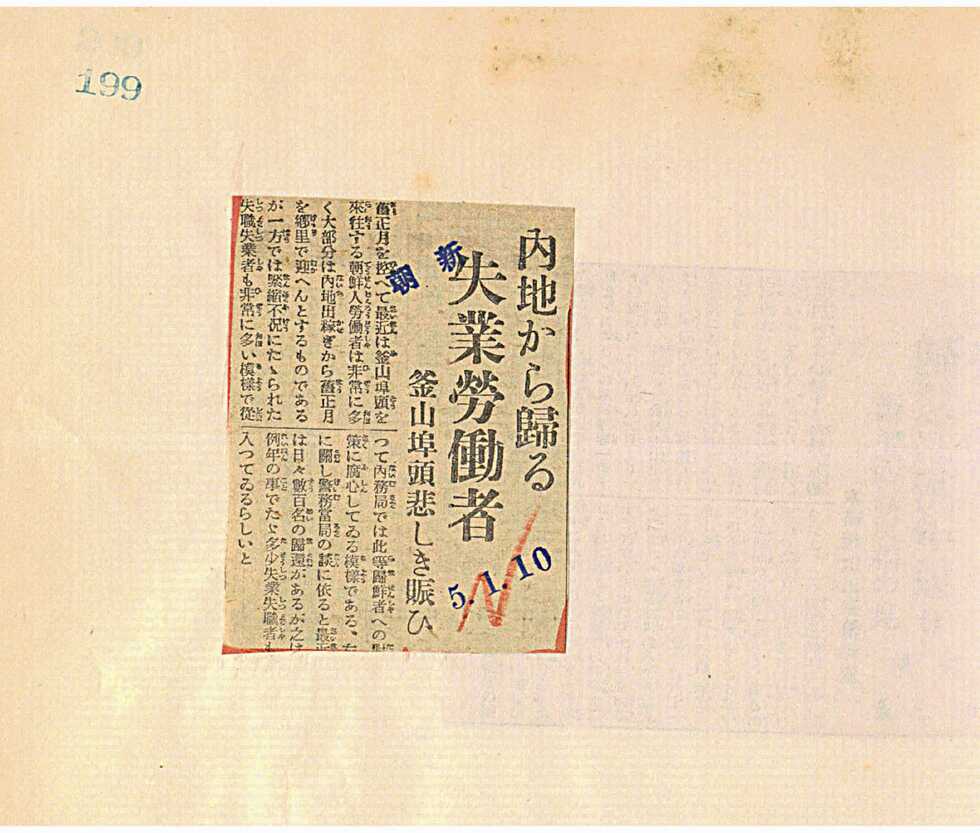 199
内地から歸る
失業勞働者
釜山埠頭悲しき賑ひ
新
朝
5.1.10
舊正月を控へて最近は釜山埠頭を
來往する朝鮮人勞働者は非常に多
く大部分は內地出稼ぎから舊正月
を鄕里で迎へんとするものである
が一方では緊縮不況にたゝられた
失職失業者も非常に多い模樣で從
つて內務局では此等歸鮮者への對
策に腐心してゐる模樣である、右
に關し警務當局の談に依ると最近
は日々數百名の歸還があるが之は
例年の事でたゞ多少失業失職者も
入つてゐるらしいと